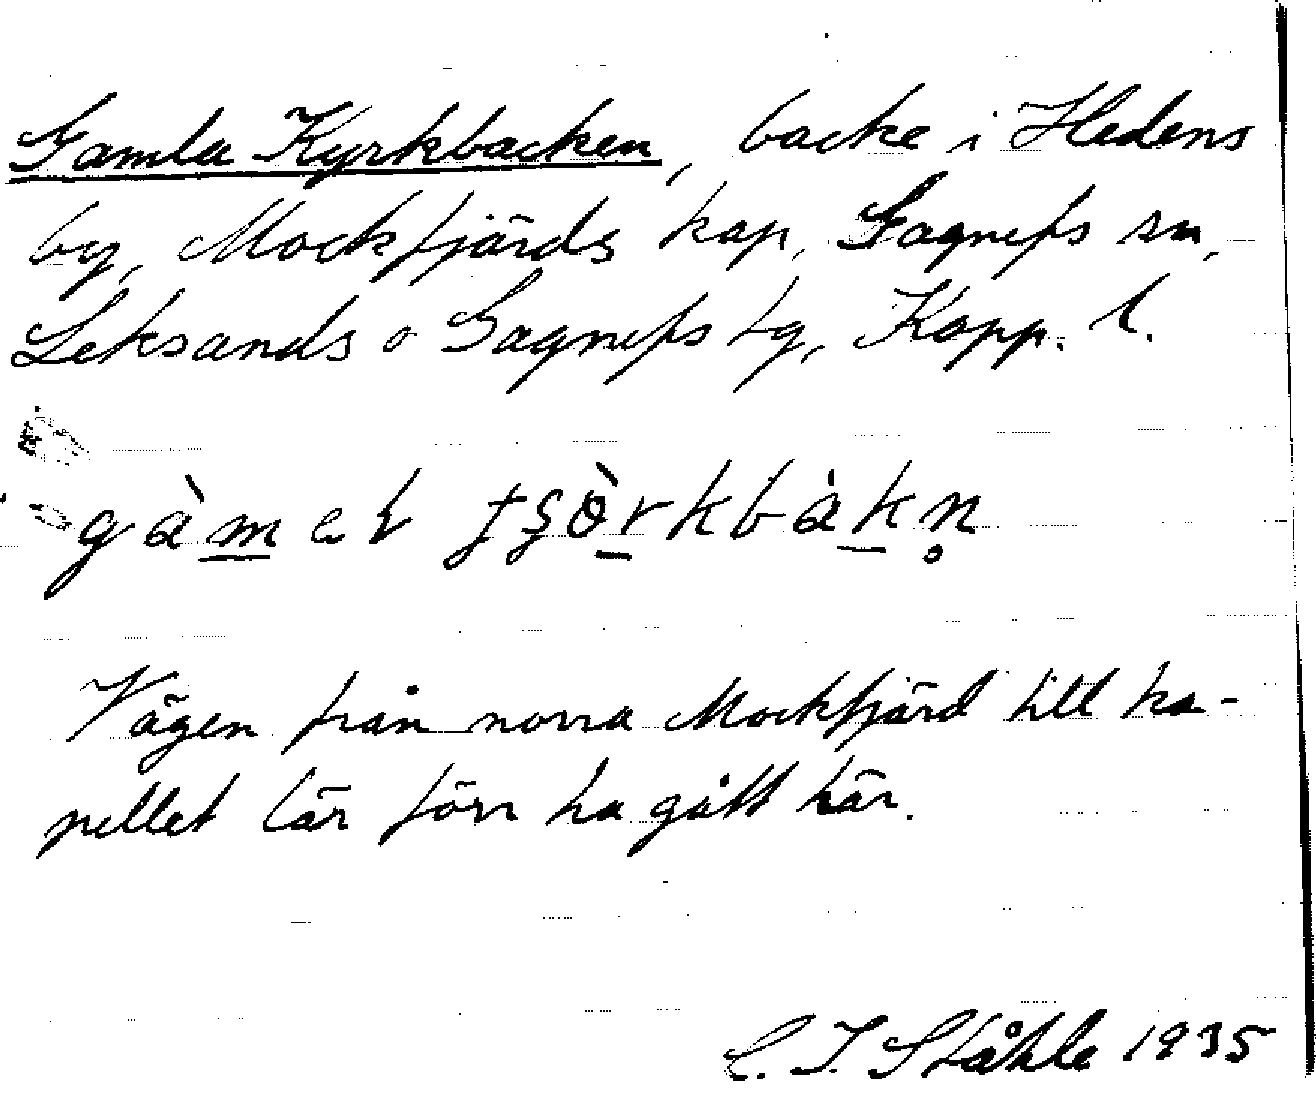 Gamla Kyrkbacken, backe i Hedens
by, Mockfjärds kap, Gagnefs sn,
Leksands o Gagnefs tg, Kopp. l.
Vägen från norra Mockfjärd till ka-
pellet lär förr ha gått här.
C. I. Ståhle 1935